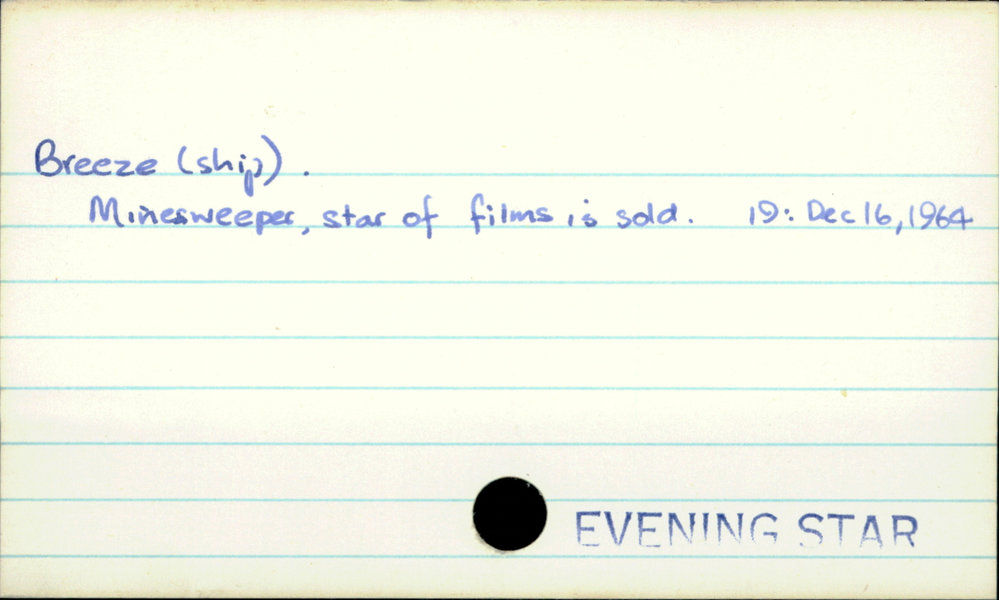 Breeze (ship).
Minesweeper, star of films is sold. 19: Dec 16, 1964
EVENING STAR